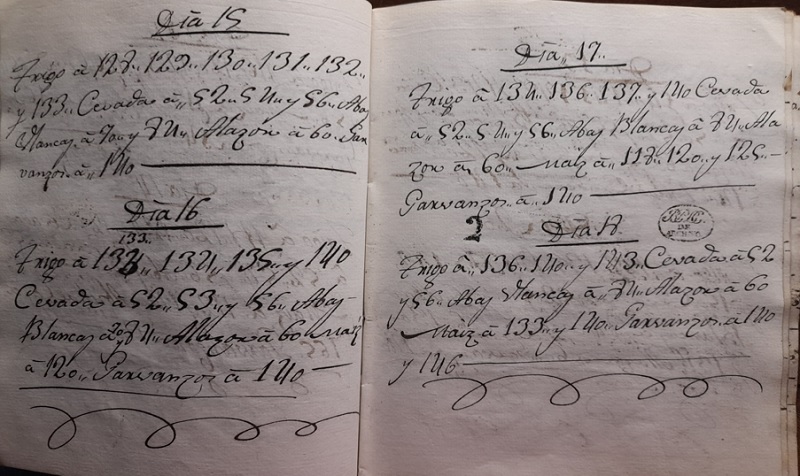 Dia 15
Trigo â 128.. 129.. 130.. 131.. 132..
y 133.. Cevada â,, 52.. 54,, y 56.. Abas
Blancas. â 70,, y 74,, Alazor â 60.. Gar
vanzos.. â,, 140
Dia 16
133.
Trigo â 134,, 135,, y 140
Cevada â 52.. 53.. y 56.. Abas
Blancas â 70 y 74,, Alazor â 60.. Maiz
â 120,, Garvanzos â 140
Dia,, 17..
Trigo â 134.. 136.. 137.. y 140 Cevada
â,, 52.. 54,, y 56,, Abas Blancas â 74,, Ala
zor â,, 60,, Maiz â,, 118.. 120.. y 125..
Garvanzos.. â,, 140
2
Dia,, 18..
Trigo â,, 136.. 140.. y 143.. Cevada â 52
y 56,, Abas Blancas â,, 74,, Alazor â 60
Maiz â 133.. y 140.. Garvanzos.. â 140
y 146